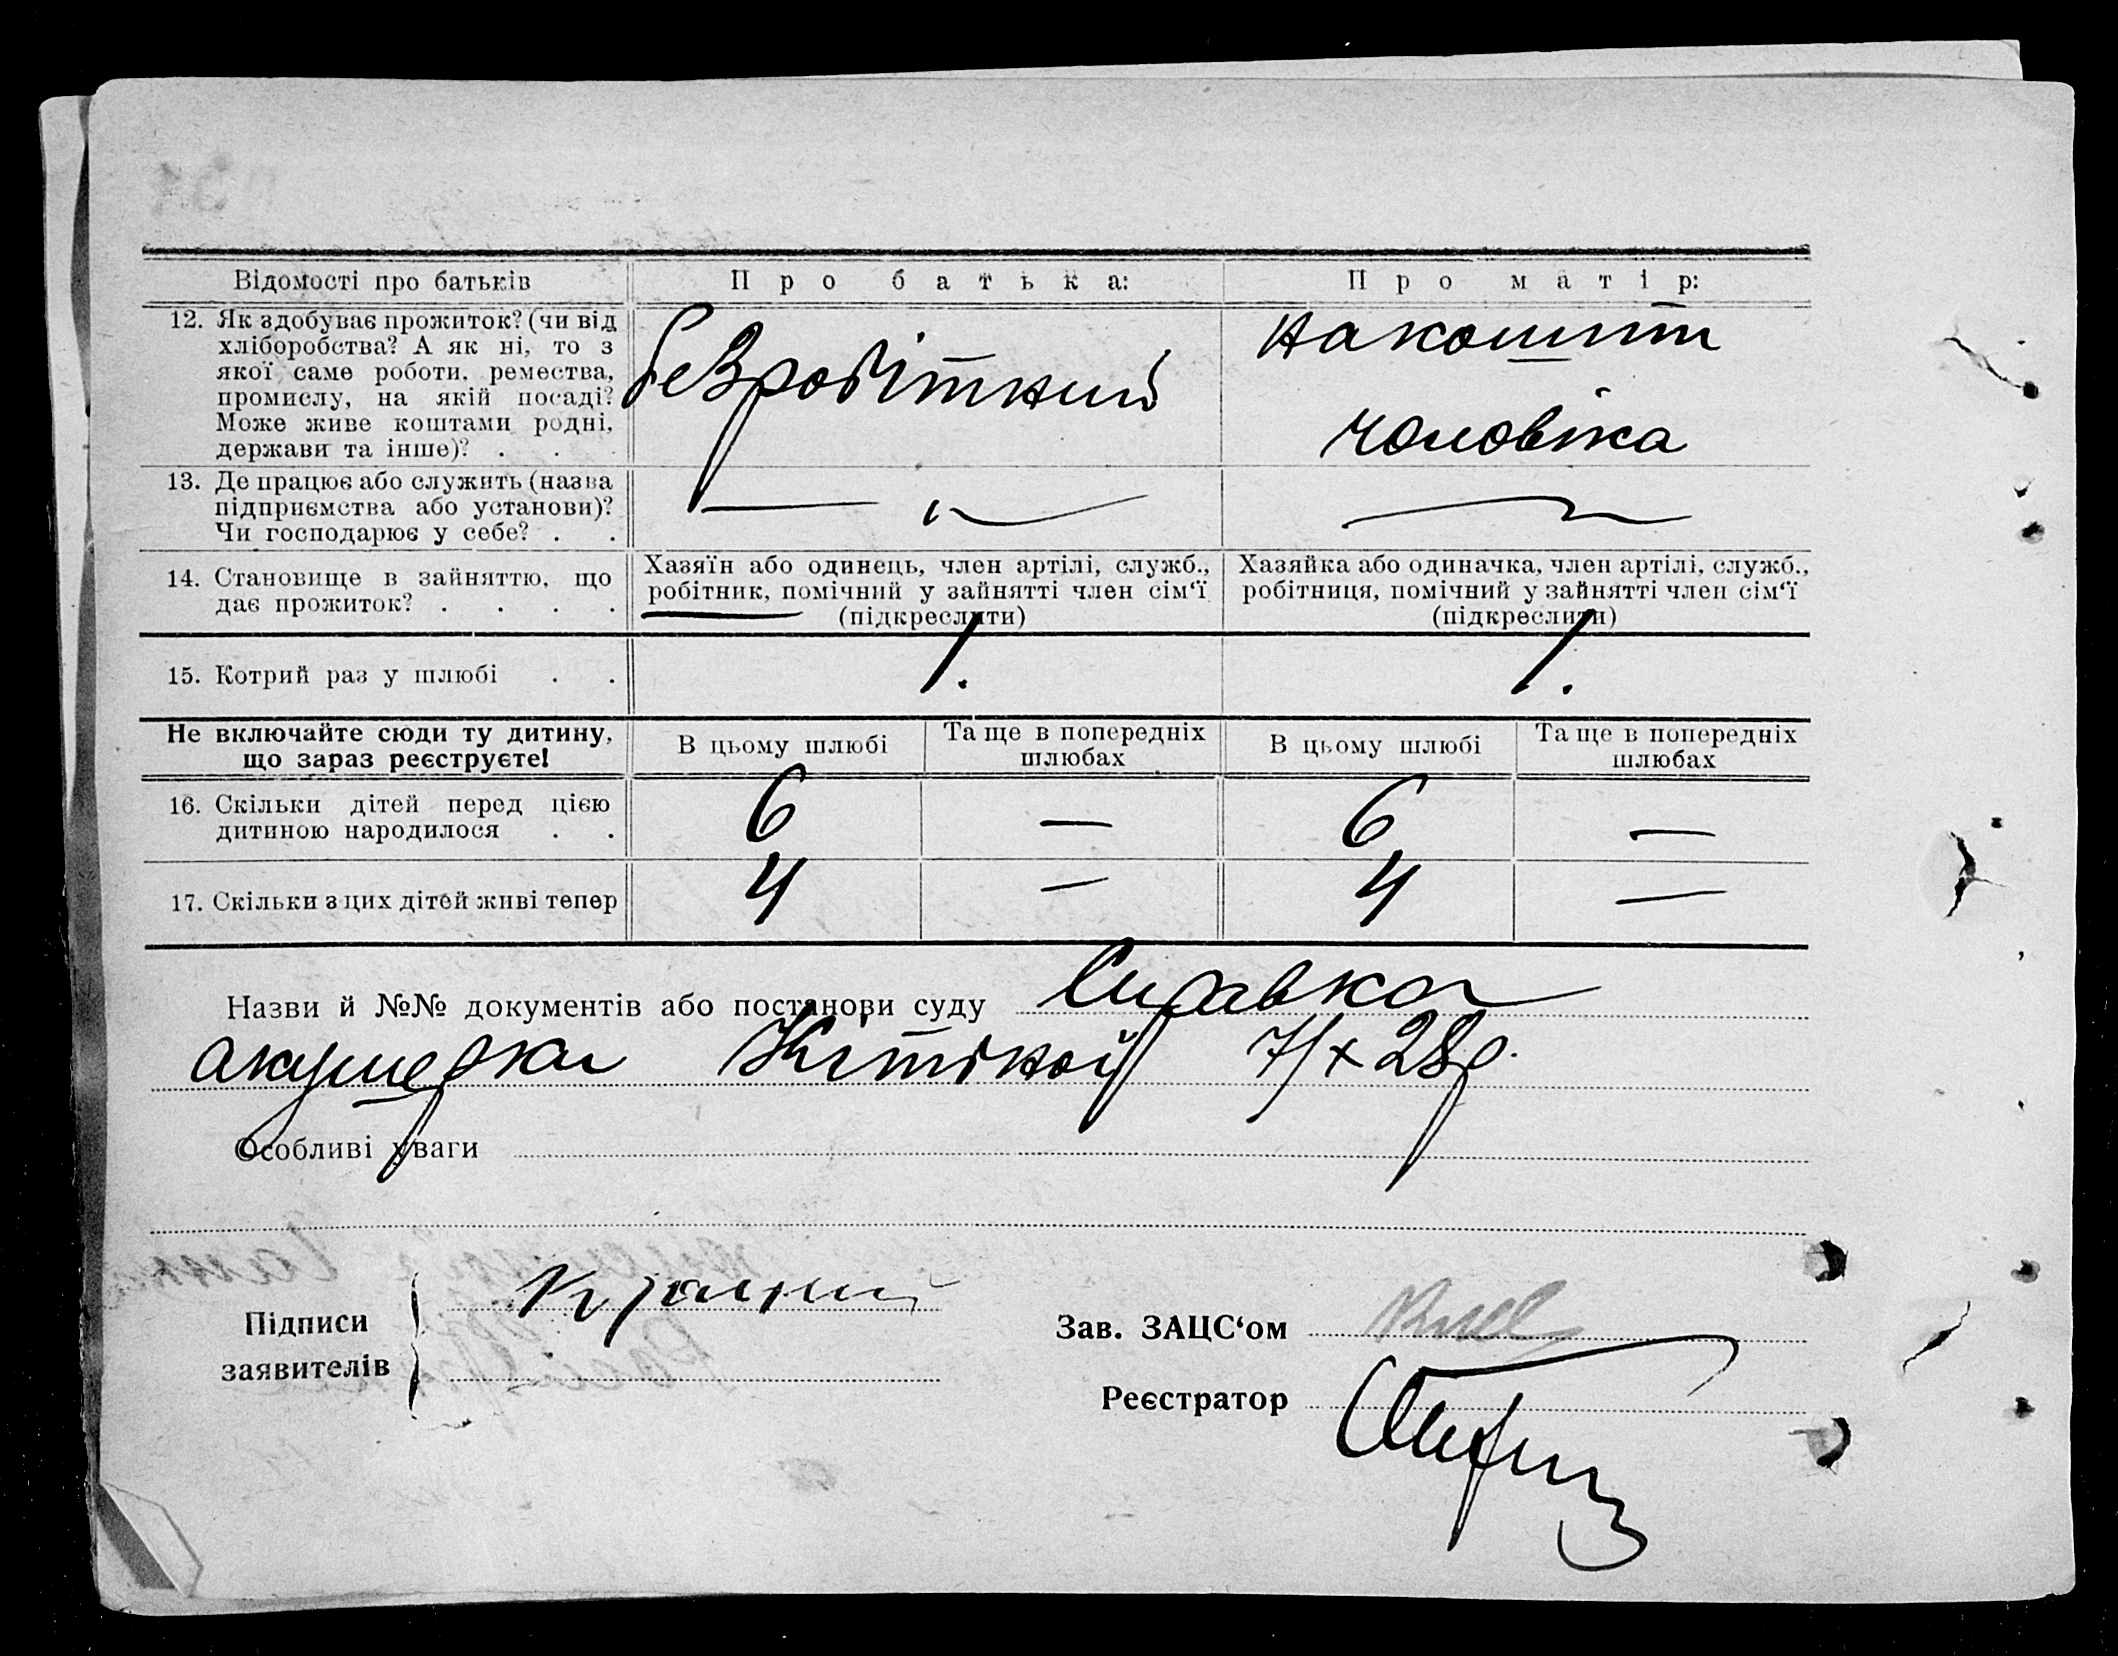 Відомості про батьків
Про батька:
Про матір:
12. Як здобуває прожиток? (чи від
хліборобства? А як ні, то з
якої саме роботи, ремества,
промислу, на якій посаді?
Може живе коштами родні,
держави та інше)? . .
безробітний
на кошти
чоловіка
13. Де працює або служить (назва
підприємства або установи)?
Чи господарює у себе? . .
— " —
—
14. Становище в зайняттю, що
дає прожиток? . . . .
Хазяїн або одинець, член артілі, служб.,
робітник, помічний у зайнятті член сім‘ї
(підкреслити)
Хазяйка або одиначка, член артілі, служб.,
робітниця, помічний у зайнятті член сім‘ї
(підкреслити)
15. Котрий раз у шлюбі . .
1.
1.
Не включайте сюди ту дитину,
що зараз реєструєте!
В цьому шлюбі
Та ще в попередніх
шлюбах
В цьому шлюбі
Та ще в попередніх
шлюбах
16. Скільки дітей перед цією
дитиною народилося . .
6 — 6 —
17. Скільки з цих дітей живі тепер
4 — 4 —
Назви й №№ документів або постанови суду Справка
акушерки 7/X 28р.
Особливі уваги
Підписи
заявителів
Зав. ЗАЦС‘ом
Реєстратор